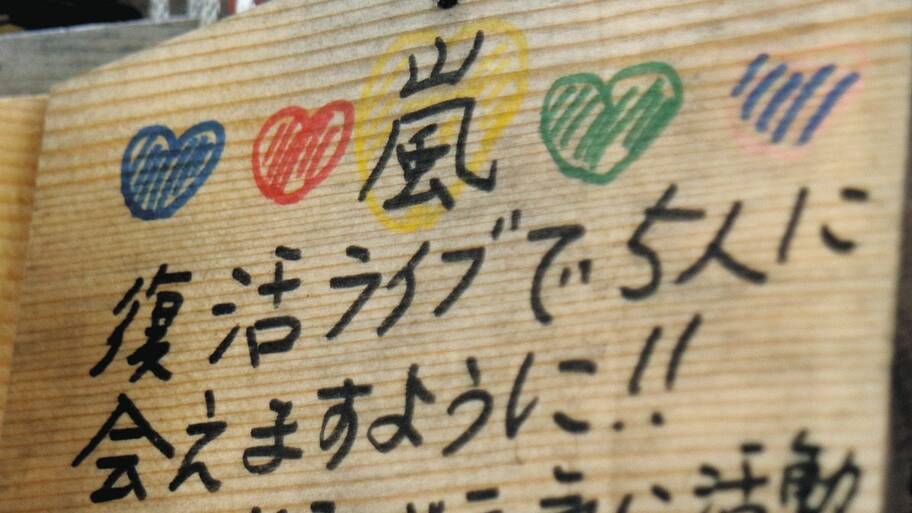 嵐
復活ライブで5人に
会えますように!!
活動